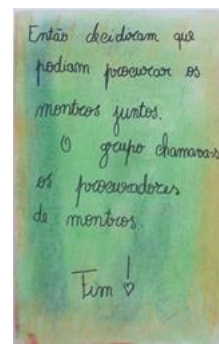 Então decidiram que
podiam procurar os
montros juntos.
O grupo chamava-s
os procuradores
de montros.
Fim!